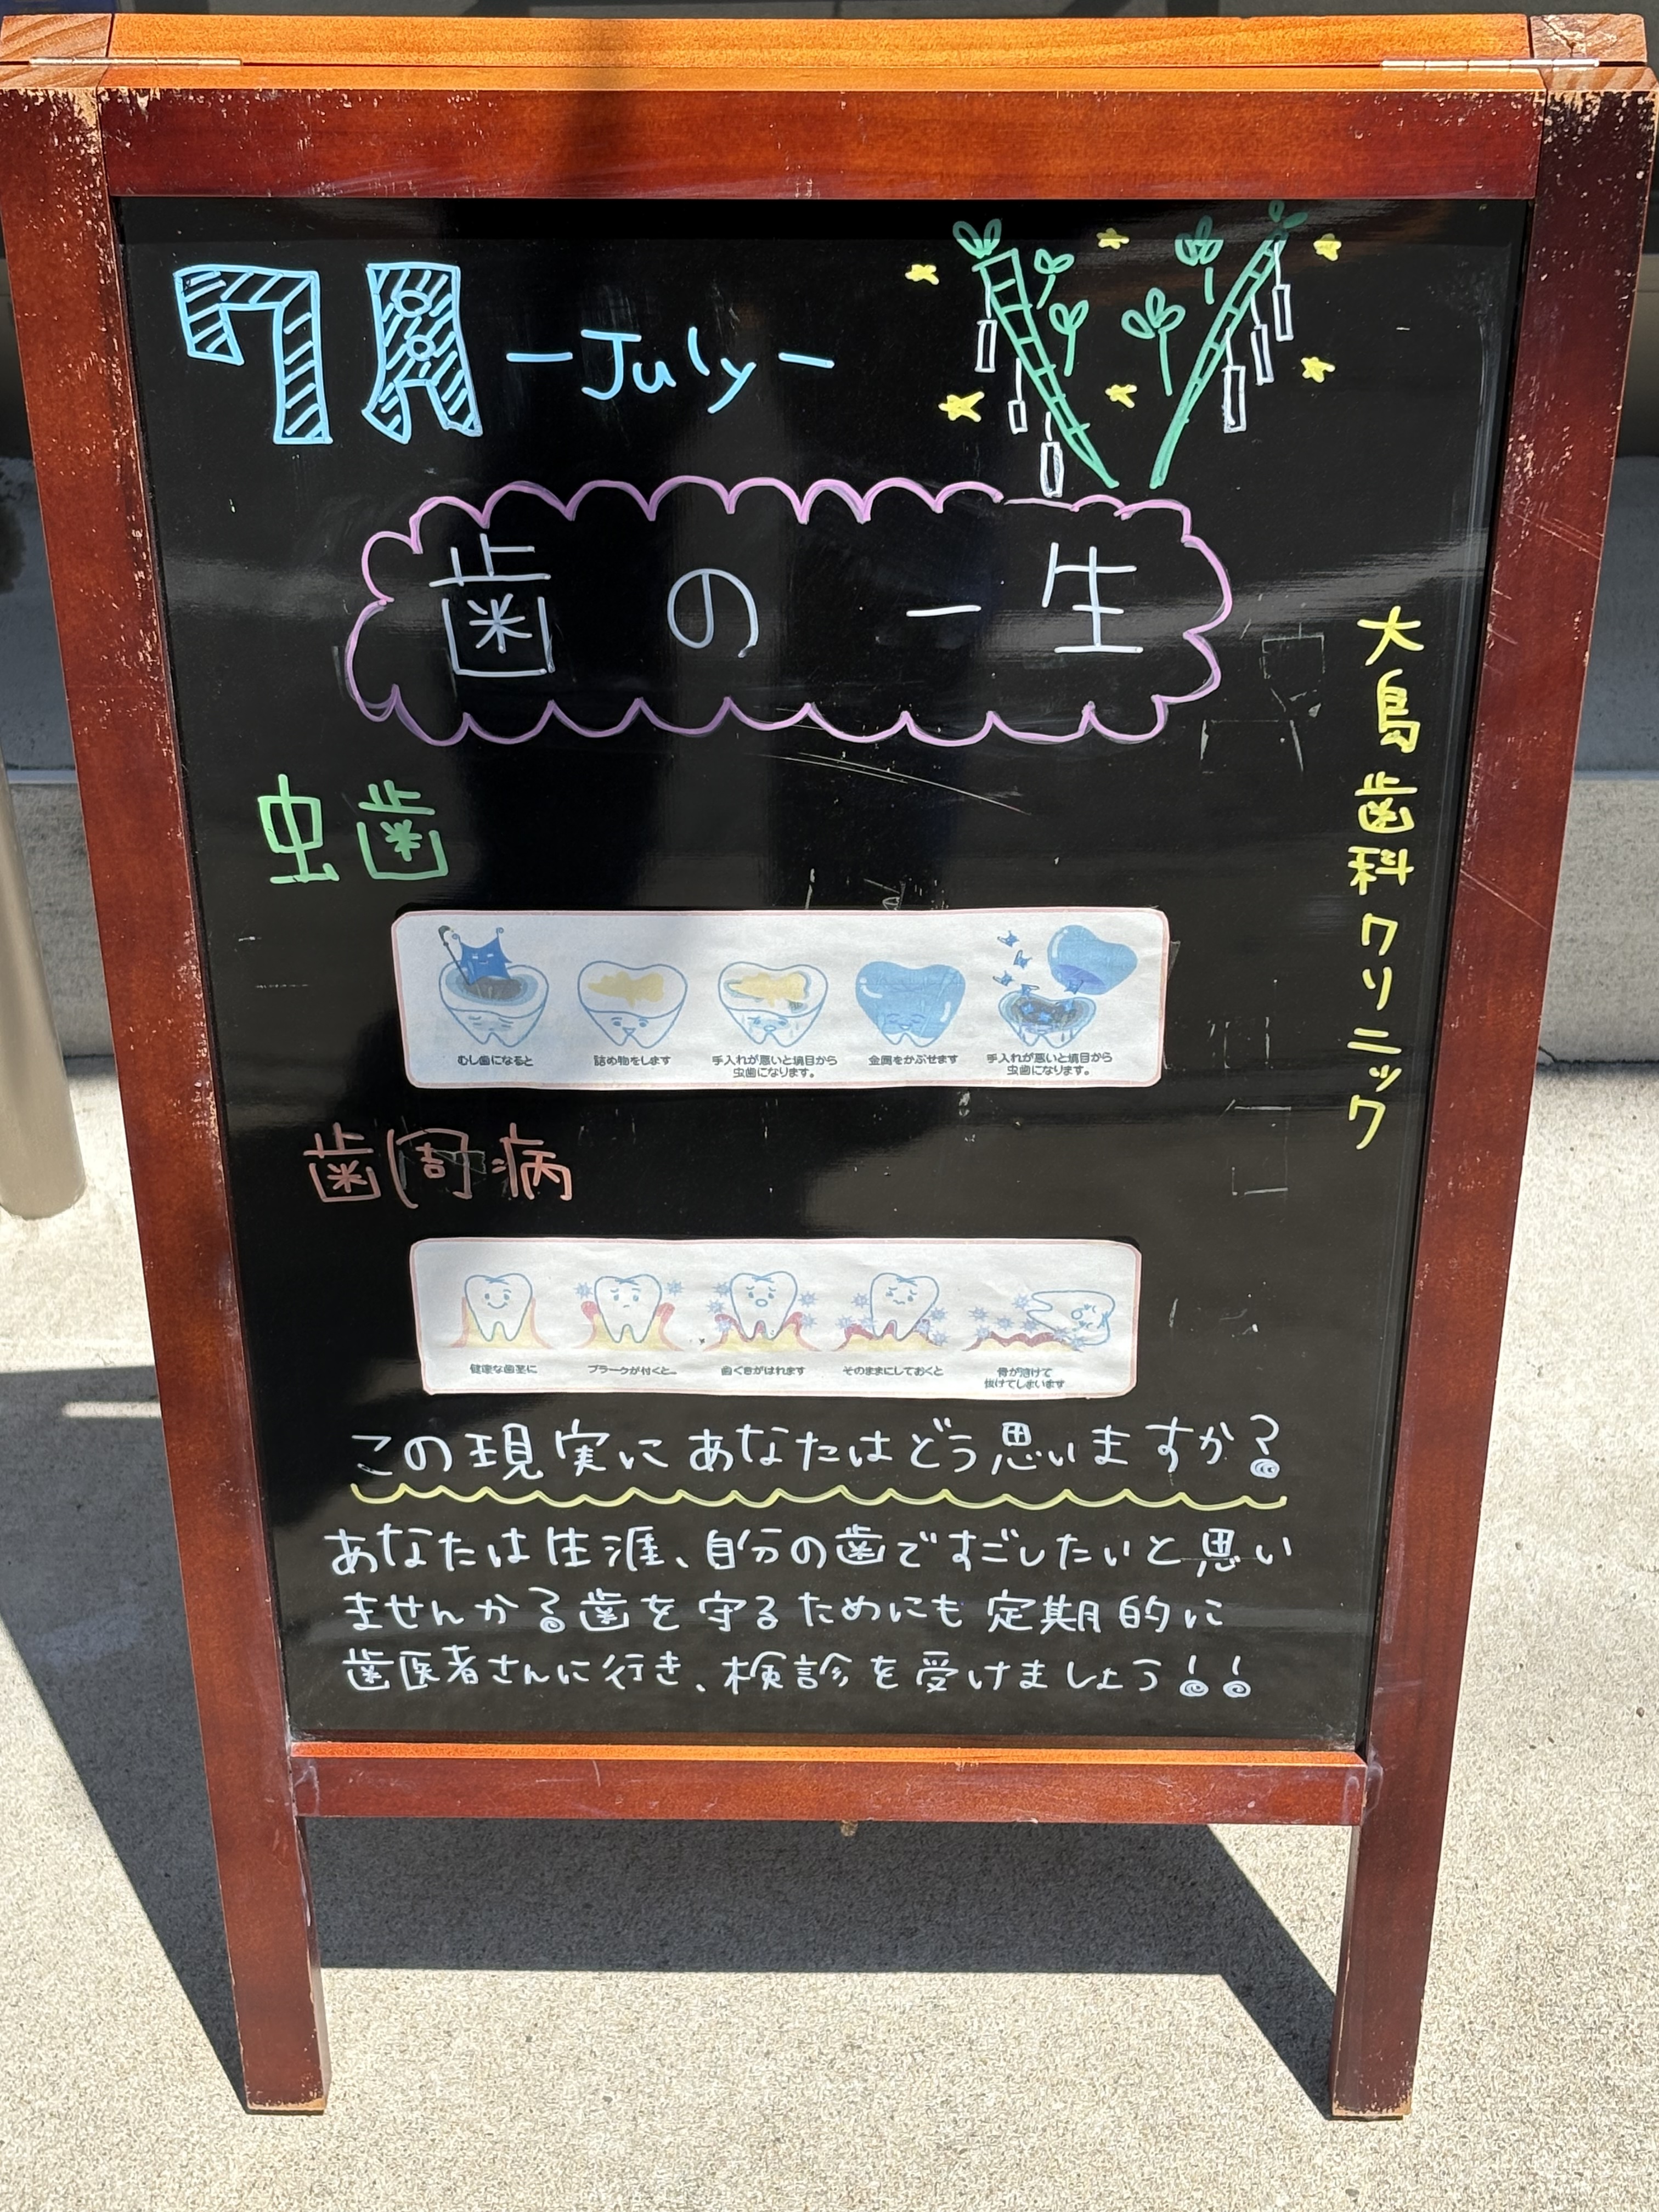 7月 -July-
歯の一生
大島歯科クリニック
虫歯
むし歯になると
詰め物をします
手入れが悪いと境目から
虫歯になります。
金属をかぶせます
手入れが悪いと境目から
虫歯になります。
歯周病
健康な歯茎に
プラークが付くと…
歯ぐきがはれます
そのままにしておくと
骨が溶けて
抜けてしまいます
この現実にあなたはどう思いますか?
あなたは生涯、自分の歯ですごしたいと思い
ませんか?歯を守るためにも定期的に
歯医者さんに行き、検診を受けましょう!!